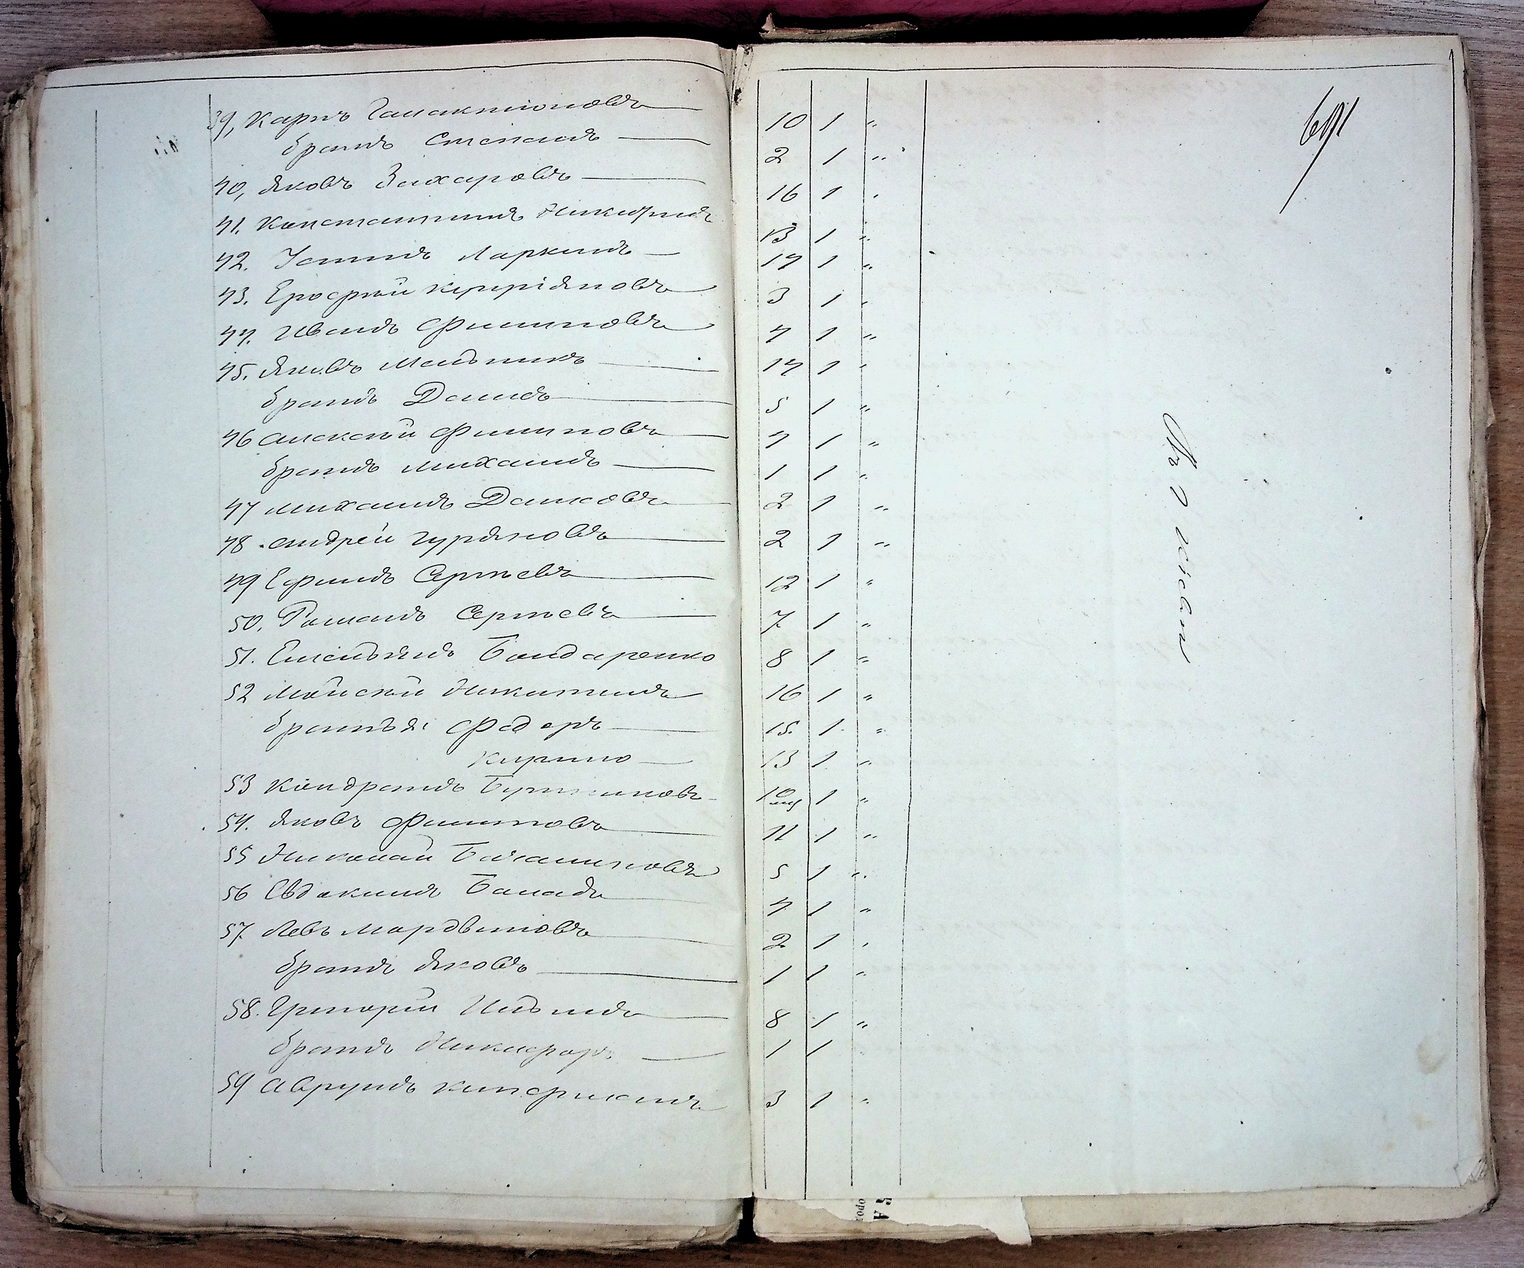 39, Карпъ Галактіоновъ 10 1 "
братъ Степанъ 2 1 "
40, Яковъ Захаровъ 16 1 "
41. Константинъ Никитинъ 13 1 "
42. Устинъ Ларкинъ 14 1 "
43. Ерофѣй 3 1 "
44. Иванъ Филиповъ 4 1 "
45. Яковъ Мельникъ 14 1 "
братъ Данилъ 5 1 "
46 Алексѣй Филиповъ 4 1 "
братъ Михаилъ 1 1 "
47 Михаилъ 2 1 "
48. Андрей Гуряновъ 2 1 "
49 Ефимъ Сергѣевъ 12 1 "
50. Романъ Сергѣевъ 7 1 "
51. Емельянъ Бондаренко 8 1 "
52 Мойсѣй Никитинъ 16 1 "
братья: Федоръ 15. 1. "
Кирило 13 1 "
53 Кондратъ 10 1 "
54. Яковъ Филиповъ 11 1 "
55 Николай 5 1 "
56 Евдокимъ 4 1 "
57. Левъ Мордвиновъ 2 1 "
братъ Яковъ 1 1 "
58. Григорій Ильинъ 8 1 "
братъ Никифоръ 1 1 "
59 3 1 "
691